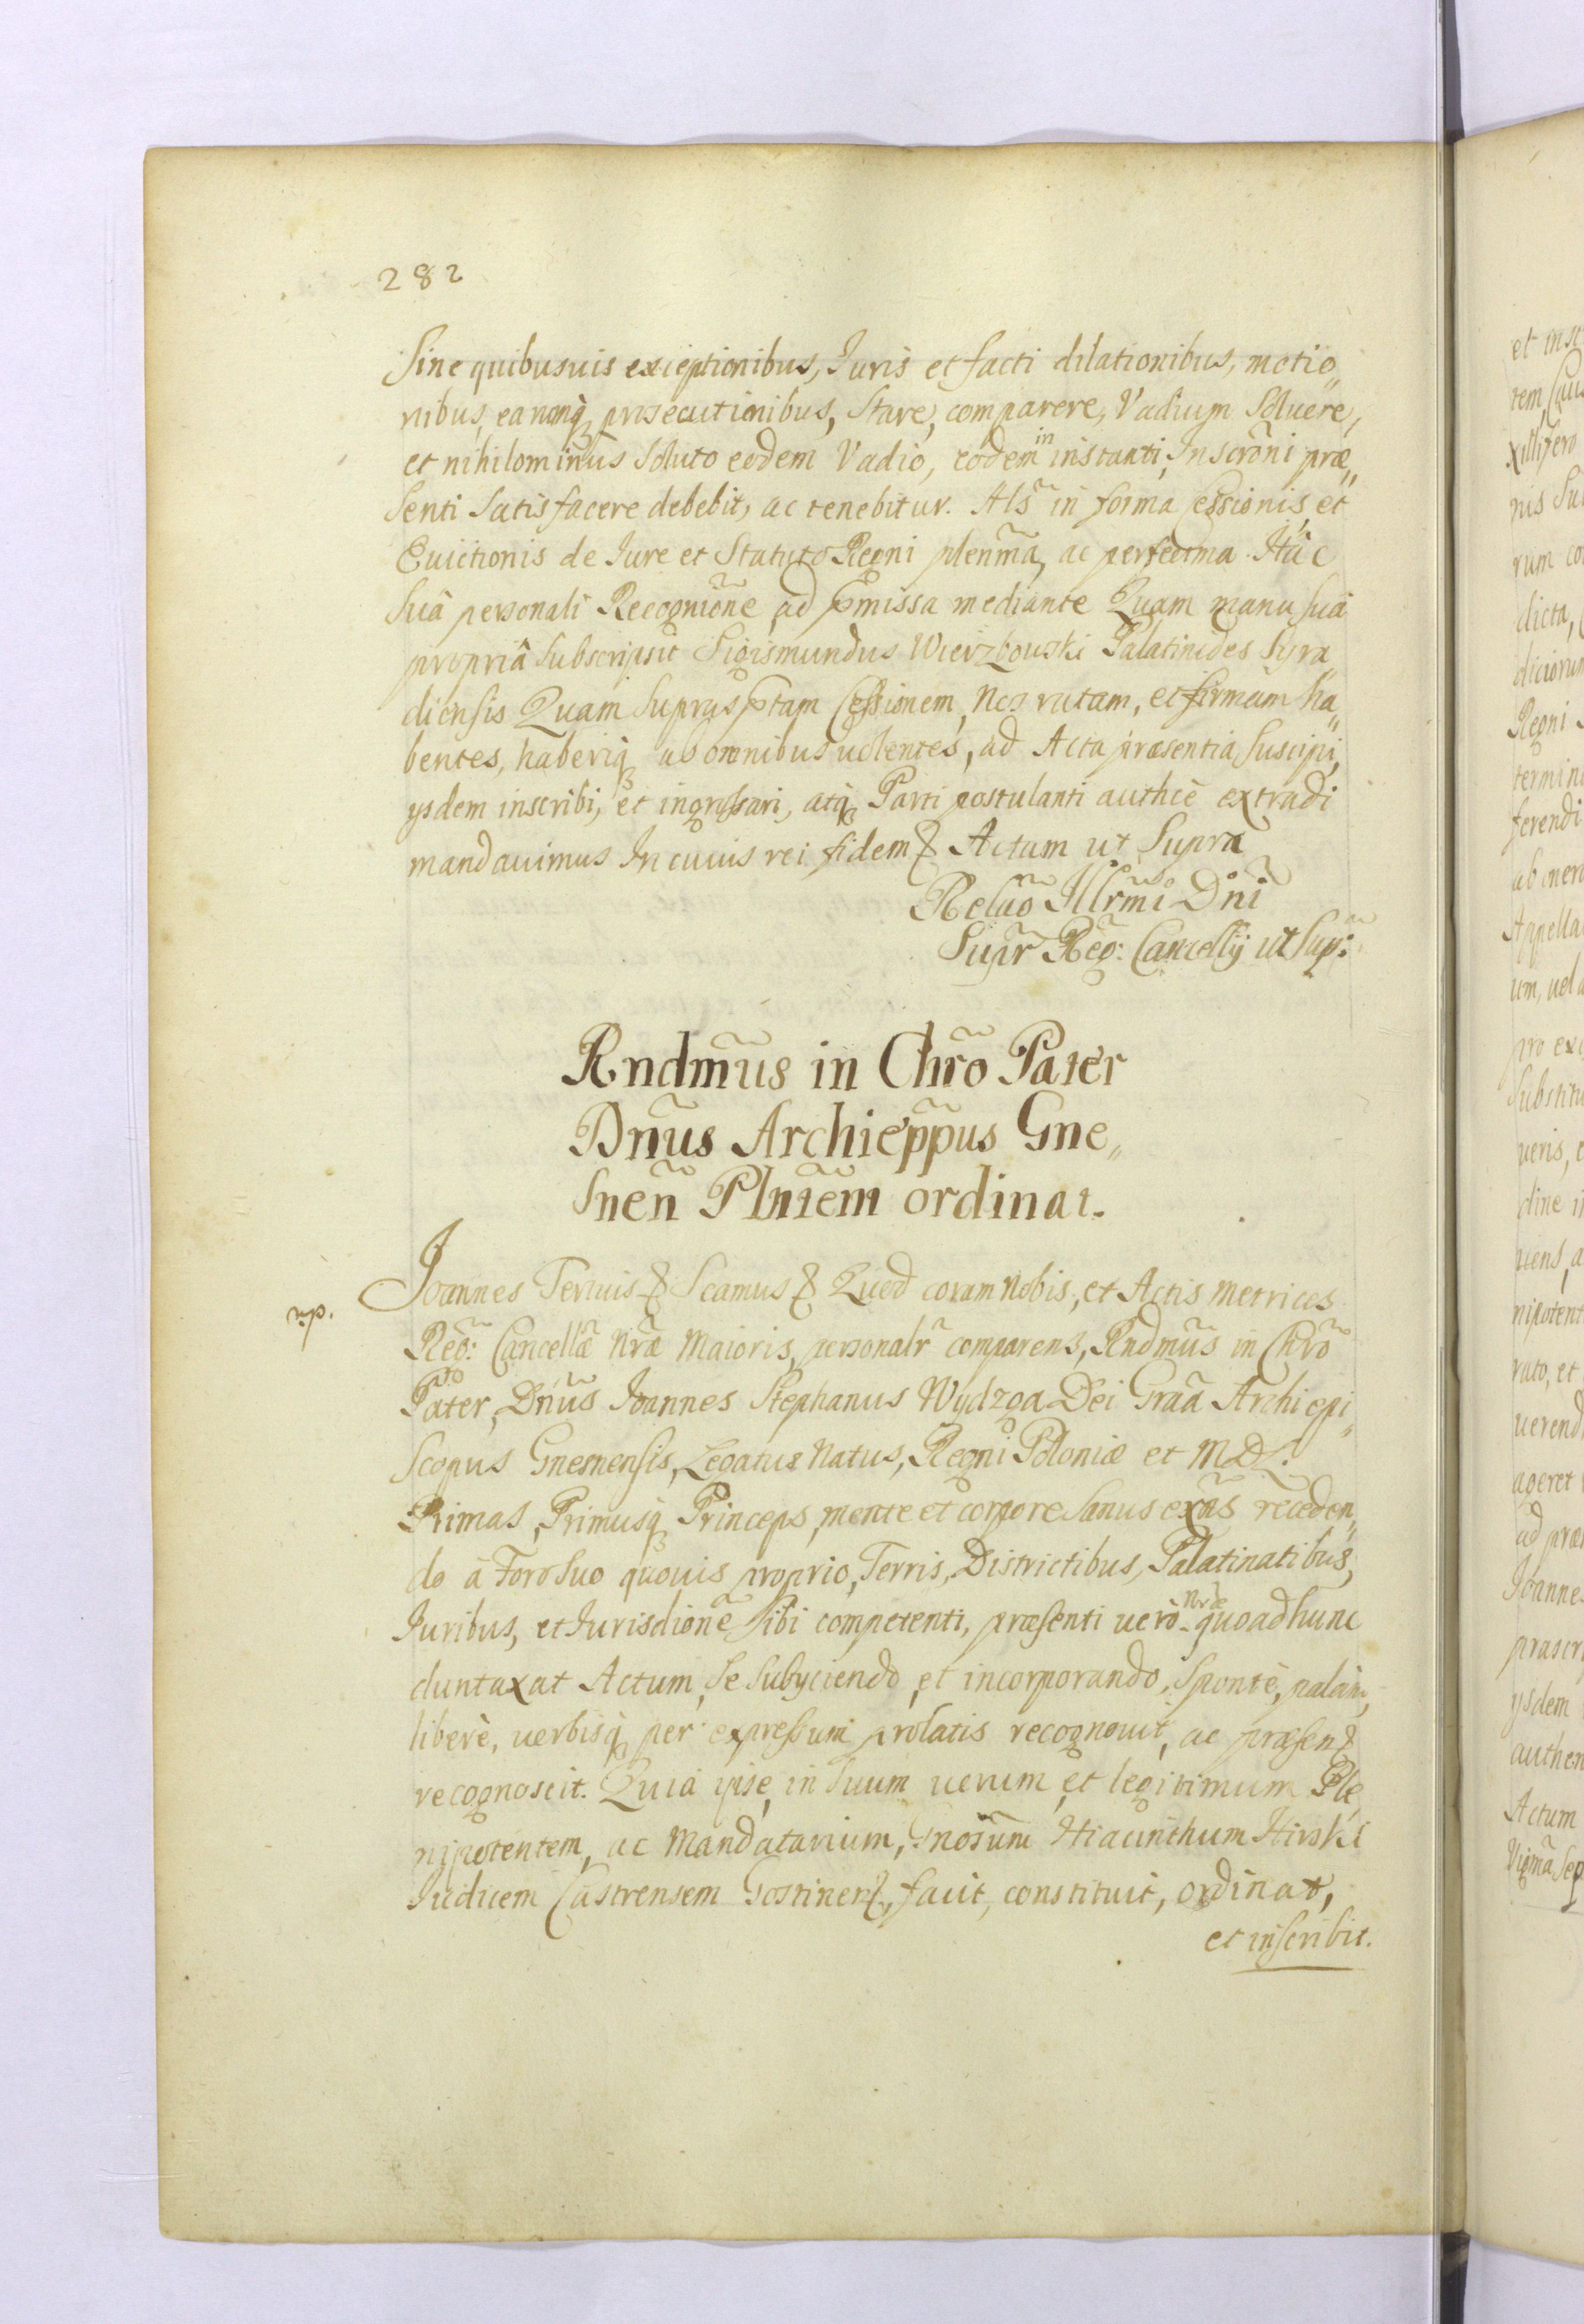 282
Sine quibusuis exceptionibus, Juris et facti dilationibus, motio„
nibus, earumq́ꝫ prosecutionibus, Stare, comparere, Vadium Soluere,
et nihilominus Soluto eodem Vadio, eodem in instanti, Inscrõni præ„
Senti Satisfacere debebit, ac tenebitur. Als̃ in forma Cessionis, et
Euictionis de Jure et Statuto Regni plenr̃ma, ac perfectma Hac
Suâ personali Recognitiõne ad p̃missa mediante Quam manu Suâ
propriâ Subscripsit Sigismundus Wierzbowski Palatinides Syra„
diensis Quam Suprasp̃tam Cessionem, Nos ratam, et firmam ha„
bentes, haberiq́ꝫ ab omnibus uolentes, ad Acta præsentia Suscipi,
ysdem inscribi, et ingrossari, atq́ꝫ Parti postulanti authcè extradi
mandauimus In cuius rei fidem ꝫ Actum ut Supra
Relaõ Illr̃mi Dnĩ
Supr̃ Reg: Cancellĳ ut Sup:
Rndm̃us in Chr̃o Pater
Dñus Archiep̃pus Gne„
Sneñ Plñtem ordinat.
np.
Joannes Tertius ꝫ Scamus ꝫ Quod coram Nobis, et Actis Metrices
Reg: Cancellæ Nr̃æ Maioris, personalr̃ comparens, Rndm̃us in Chr̃o
Pater, Dñus Joannes Stephanus Wydzga Dei Grãa Archiepi„
Scopus Gnesnensis, Legatus Natus, Regni Poloniæ et M D L:
Primas, Primusq́ꝫ Princeps, mente et corpore Sanus exñs receden„
do à Foro Suo quouis proprio, Terris, Districtibus, Palatinatibus,
Juribus, et Jurisdiõne Sibi competenti, præsenti uerò Nr̃æ quoad hunc
duntaxat Actum, Se Subyciendo, et incorporando, Spontè, palàm,
liberè, uerbisq́ꝫ per expressum prolatis recognouit, ac præsen ꝫ
recognoscit. Quia ipse, in Suum uerum, et legitimum Ple„
nipotentem, ac Mandatarium, Gnõsum Hiacinthum Hirski
Judicem Castrensem Gostinen ꝫ, facit, constituit, ordinat,
et inscribit.